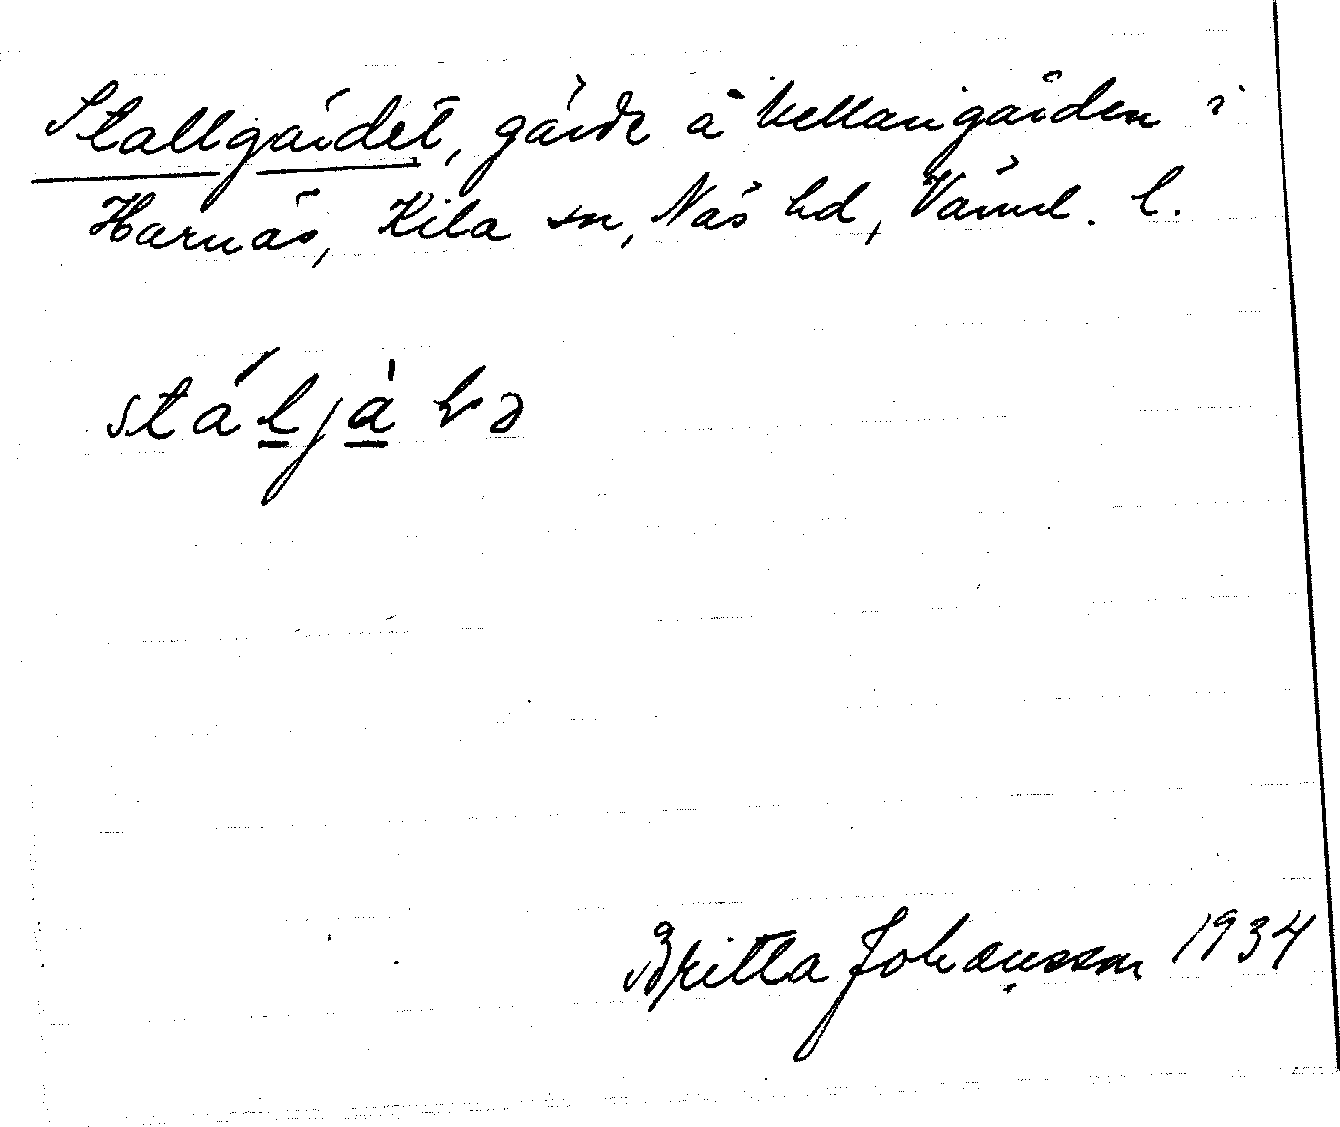 Stallgärdet, gärde å Mellangården i
Harnäs, Kila sn, Näs hd, Värml. l.
Britta Johansson 1934